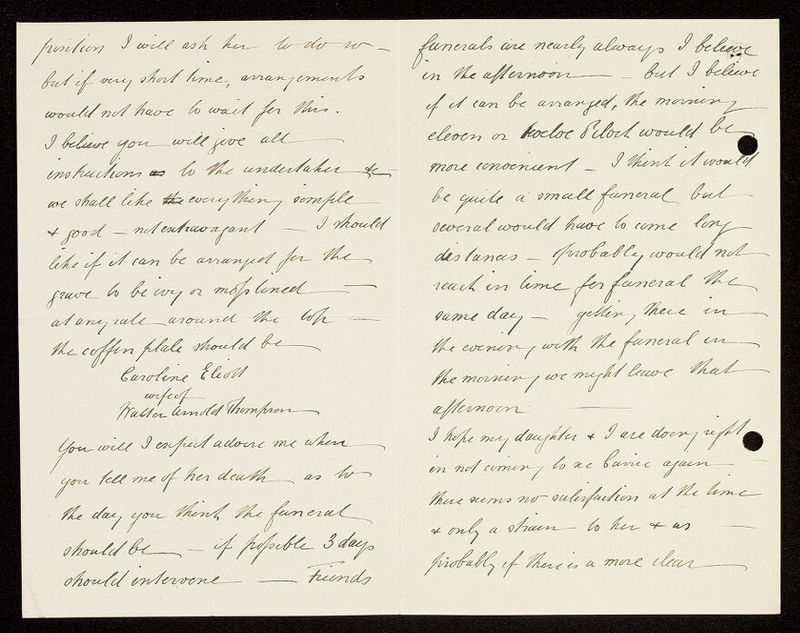 position I will ask her to do so –
but if very short time, arrangements
would not have to wait for this.
I believe you will give all
instructions as to the undertaker &
we shall like the everything simple
& good – not extravagant – I should
like if it can be arranged for the
grave to be ivy or moss lined –
at any rate around the top –
the coffin plate should be
Caroline Eliott
wife of
Walter Arnold Thompson
You will I expect advise me when
you tell me of her death as to
the day you think the funeral
should be – if possible 3 days
should intervene – Friends
funerals are nearly always I believe
in the afternoon – but I believe
if it can be arranged, the morning
eleven or twelve o'clock would be
more convenient – I think it would
be quite a small funeral but
several would have to come long
distances – probably would not
reach in time for funeral the
same day – getting there in
the evening with the funeral in
the morning we might leave that
afternoon –
I hope my daughter & I are doing right
in not coming to see Carrie again
there seems no satisfaction at the time
& only a strain to her & us –
probably if there is a more clear